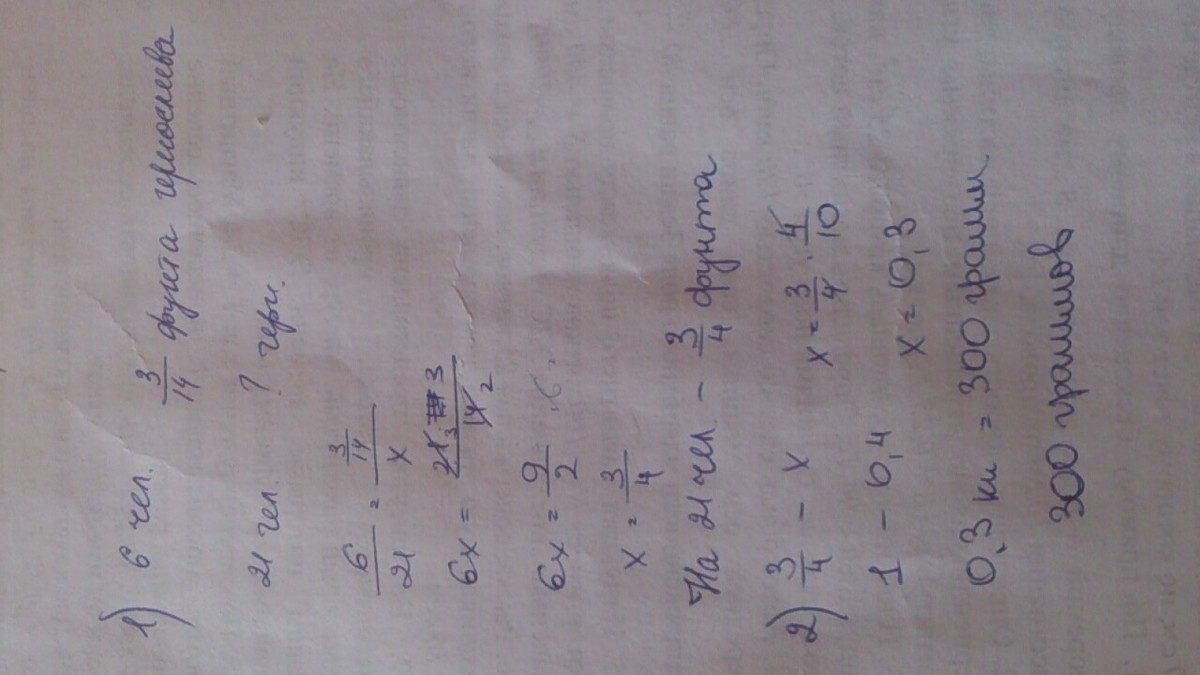 1) 6 чел. 3/14 фунта чернослива
21 чел. ? черн.
6/21 = 3/14 / x
6x = 21·3/14
6x = 9/2
x = 3/4
На 21 чел - 3/4 фунта
2) 3/4 - x x = 3/4 · 4/10
1 - 0,4 x = 0,3
0,3 кг = 300 грамм.
300 граммов